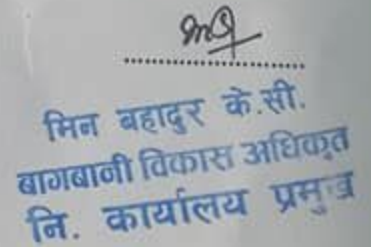 मिन बहादुर के.सी.
बागबानी विकास अधिकृत
नि. कार्यालय प्रमुख